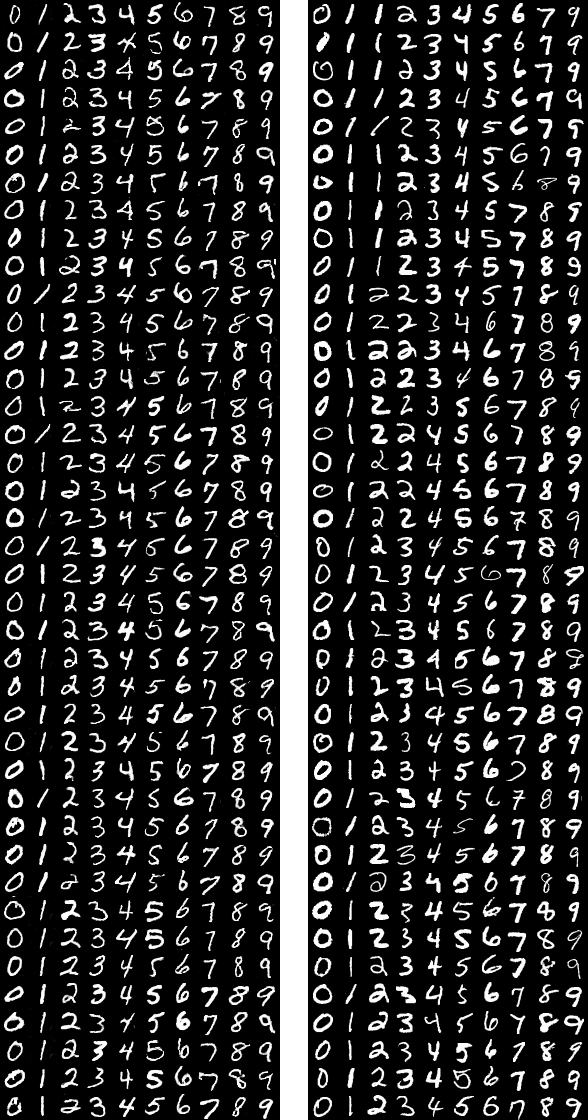 0 1 2 3 4 5 6 7 8 9
0 1 2 3 4 5 6 7 8 9
0 1 2 3 4 5 6 7 8 9
0 1 2 3 4 5 6 7 8 9
0 1 2 3 4 5 6 7 8 9
0 1 2 3 4 5 6 7 8 9
0 1 2 3 4 5 6 7 8 9
0 1 2 3 4 5 6 7 8 9
0 1 2 3 4 5 6 7 8 9
0 1 2 3 4 5 6 7 8 9
0 1 2 3 4 5 6 7 8 9
0 1 2 3 4 5 6 7 8 9
0 1 2 3 4 5 6 7 8 9
0 1 2 3 4 5 6 7 8 9
0 1 2 3 4 5 6 7 8 9
0 1 2 3 4 5 6 7 8 9
0 1 2 3 4 5 6 7 8 9
0 1 2 3 4 5 6 7 8 9
0 1 2 3 4 5 6 7 8 9
0 1 2 3 4 5 6 7 8 9
0 1 2 3 4 5 6 7 8 9
0 1 2 3 4 5 6 7 8 9
0 1 2 3 4 5 6 7 8 9
0 1 2 3 4 5 6 7 8 9
0 1 2 3 4 5 6 7 8 9
0 1 2 3 4 5 6 7 8 9
0 1 2 3 4 5 6 7 8 9
0 1 2 3 4 5 6 7 8 9
0 1 2 3 4 5 6 7 8 9
0 1 2 3 4 5 6 7 8 9
0 1 2 3 4 5 6 7 8 9
0 1 2 3 4 5 6 7 8 9
0 1 2 3 4 5 6 7 8 9
0 1 2 3 4 5 6 7 8 9
0 1 2 3 4 5 6 7 8 9
0 1 2 3 4 5 6 7 8 9
0 1 2 3 4 5 6 7 8 9
0 1 2 3 4 5 6 7 8 9
0 1 2 3 4 5 6 7 8 9
0 1 2 3 4 5 6 7 8 9
0 1 1 2 3 4 5 6 7 9
0 1 1 2 3 4 5 6 7 9
0 1 1 2 3 4 5 6 7 9
0 1 1 2 3 4 5 6 7 9
0 1 1 2 3 4 5 6 7 9
0 1 1 2 3 4 5 6 7 9
0 1 1 2 3 4 5 6 8 9
0 1 1 2 3 4 5 7 8 9
0 1 1 2 3 4 5 7 8 9
0 1 1 2 3 4 5 7 8 9
0 1 2 2 3 4 5 7 8 9
0 1 2 2 3 4 6 7 8 9
0 1 2 2 3 4 6 7 8 9
0 1 2 2 3 4 6 7 8 9
0 1 2 2 3 5 6 7 8 9
0 1 2 2 4 5 6 7 8 9
0 1 2 2 4 5 6 7 8 9
0 1 2 2 4 5 6 7 8 9
0 1 2 2 4 5 6 7 8 9
0 1 2 3 4 5 6 7 8 9
0 1 2 3 4 5 6 7 8 9
0 1 2 3 4 5 6 7 8 9
0 1 2 3 4 5 6 7 8 9
0 1 2 3 4 5 6 7 8 9
0 1 2 3 4 5 6 7 8 9
0 1 2 3 4 5 6 7 8 9
0 1 2 3 4 5 6 7 8 9
0 1 2 3 4 5 6 7 8 9
0 1 2 3 4 5 6 7 8 9
0 1 2 3 4 5 6 7 8 9
0 1 2 3 4 5 6 7 8 9
0 1 2 3 4 5 6 7 8 9
0 1 2 3 4 5 6 7 8 9
0 1 2 3 4 5 6 7 8 9
0 1 2 3 4 5 6 7 8 9
0 1 2 3 4 5 6 7 8 9
0 1 2 3 4 5 6 7 8 9
0 1 2 3 4 5 6 7 8 9
0 1 2 3 4 5 6 7 8 9
0 1 2 3 4 5 6 7 8 9